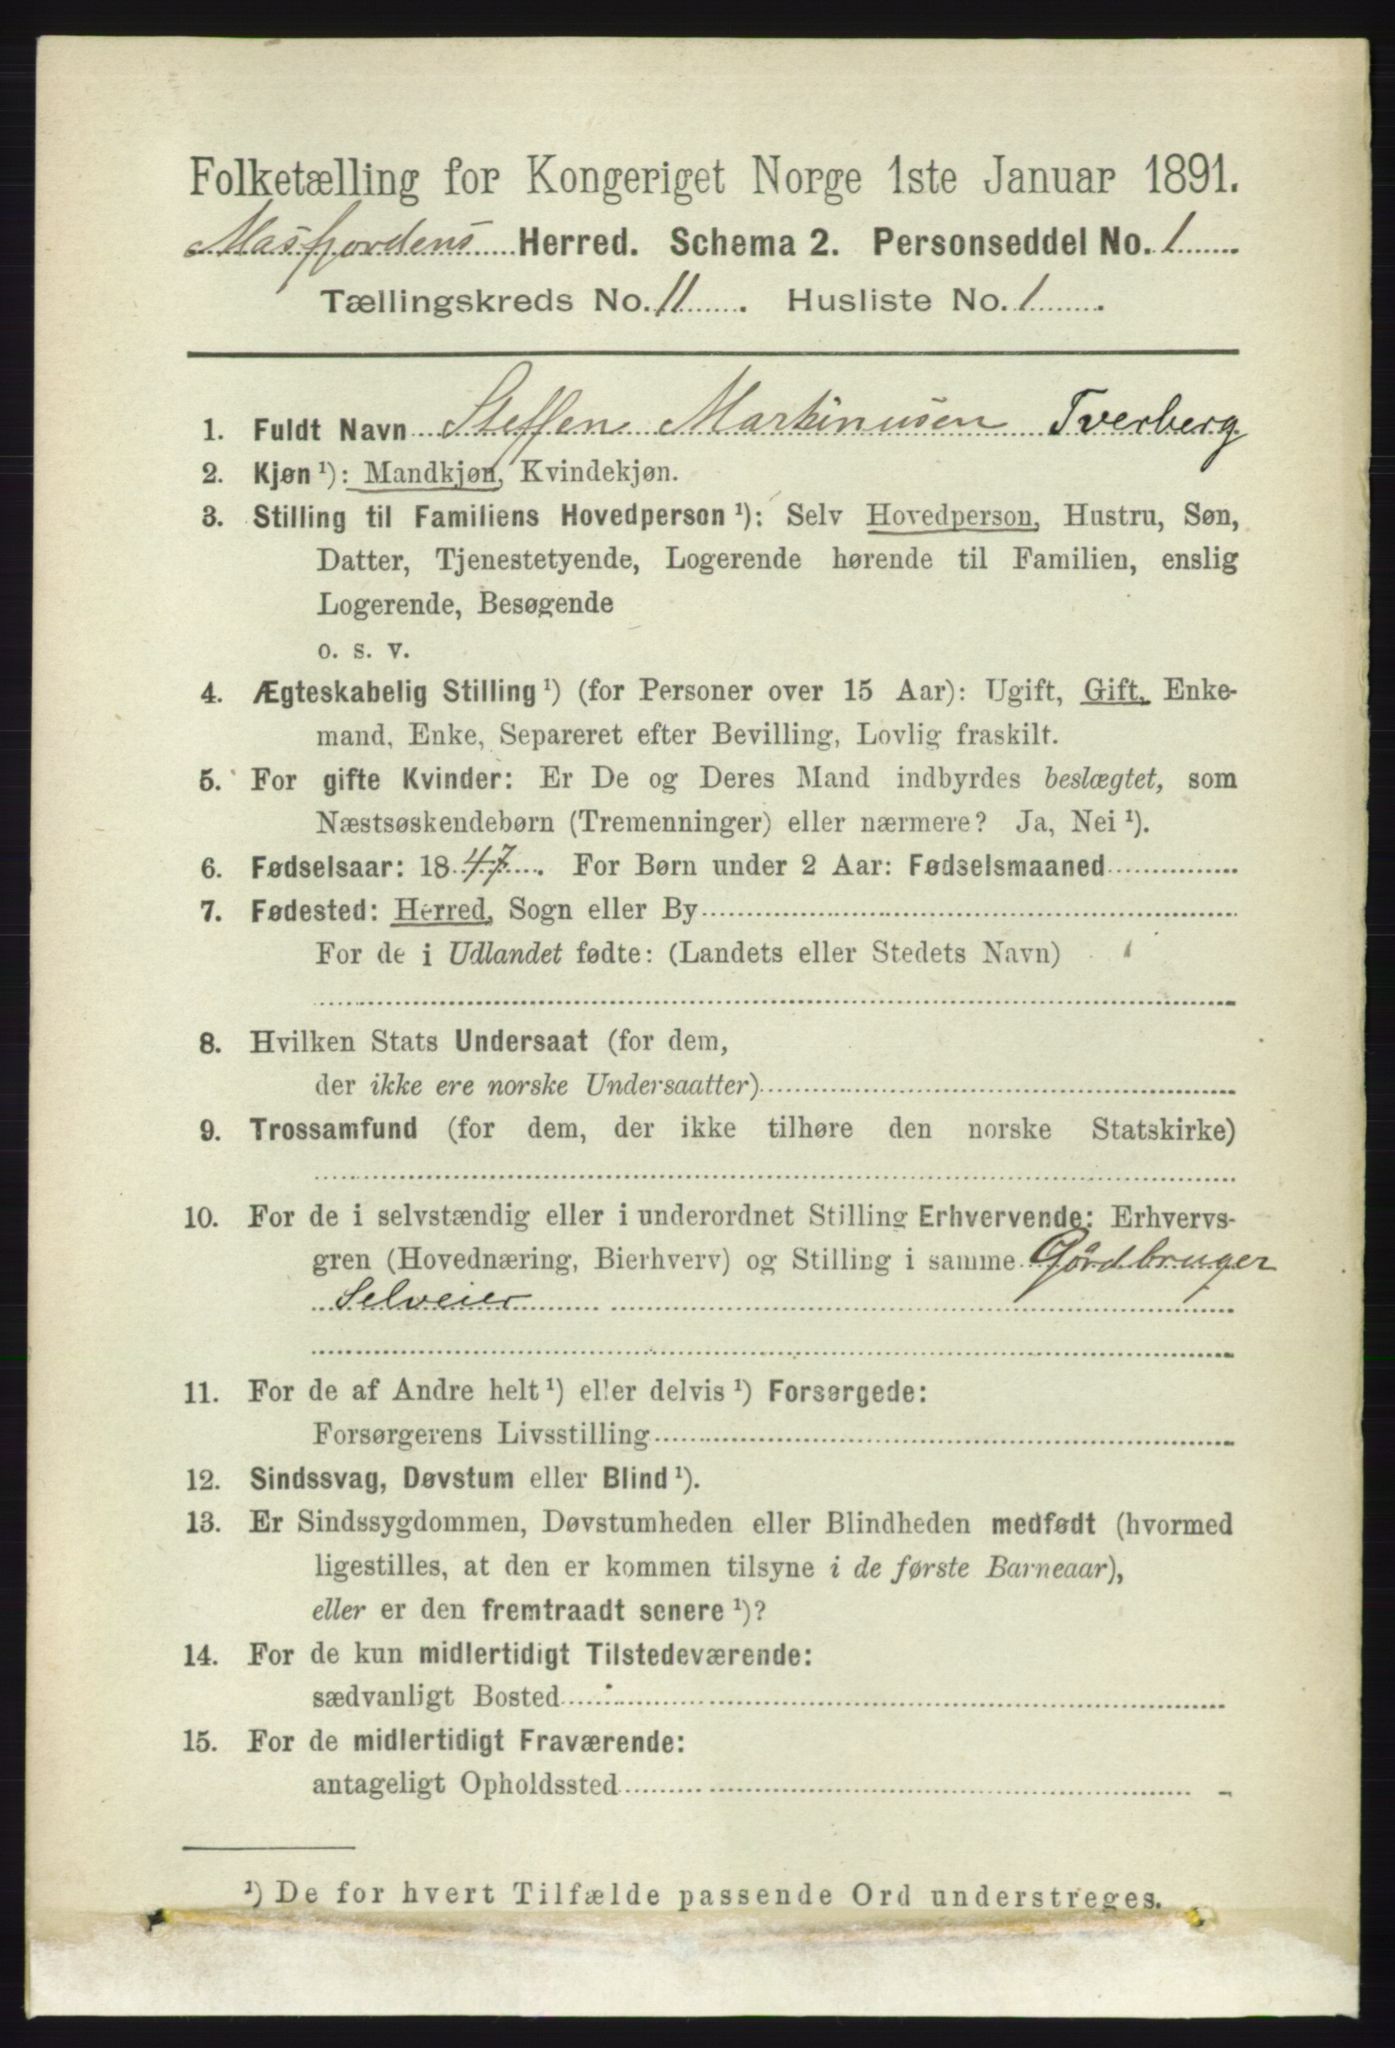 Folketælling for Kongeriget Norge 1ste Januar 1891.
Masfjordens Herred. Schema 2. Personseddel No. 1
Tællingskreds No. 11. Husliste No. 1.
1. Fuldt Navn Steffen Martinusen Tverberg
2. Kjøn ¹): Mandkjøn, Kvindekjøn.
3. Stilling til Familiens Hovedperson ¹): Selv Hovedperson, Hustru, Søn,
Datter, Tjenestetyende, Logerende hørende til Familien, enslig
Logerende, Besøgende
o. s. v.
4. Ægteskabelig Stilling ¹) (for Personer over 15 Aar): Ugift, Gift, Enke-
mand, Enke, Separeret efter Bevilling, Lovlig fraskilt.
5. For gifte Kvinder: Er De og Deres Mand indbyrdes beslægtet, som
Næstsøskendebørn (Tremenninger) eller nærmere? Ja, Nei ¹).
6. Fødselsaar: 1847. For Børn under 2 Aar: Fødselsmaaned
7. Fødested: Herred, Sogn eller By
For de i Udlandet fødte: (Landets eller Stedets Navn)
8. Hvilken Stats Undersaat (for dem,
der ikke ere norske Undersaatter)
9. Trossamfund (for dem, der ikke tilhøre den norske Statskirke)
10. For de i selvstændig eller i underordnet Stilling Erhvervende: Erhvervs-
gren (Hovednæring, Bierhverv) og Stilling i samme Gårdbruger
Selveier
11. For de af Andre helt ¹) eller delvis ¹) Forsørgede:
Forsørgerens Livsstilling
12. Sindssvag, Døvstum eller Blind ¹).
13. Er Sindssygdommen, Døvstumheden eller Blindheden medfødt (hvormed
ligestilles, at den er kommen tilsyne i de første Barneaar),
eller er den fremtraadt senere ¹)?
14. For de kun midlertidigt Tilstedeværende:
sædvanligt Bosted
15. For de midlertidigt Fraværende:
antageligt Opholdssted
¹) De for hvert Tilfælde passende Ord understreges.